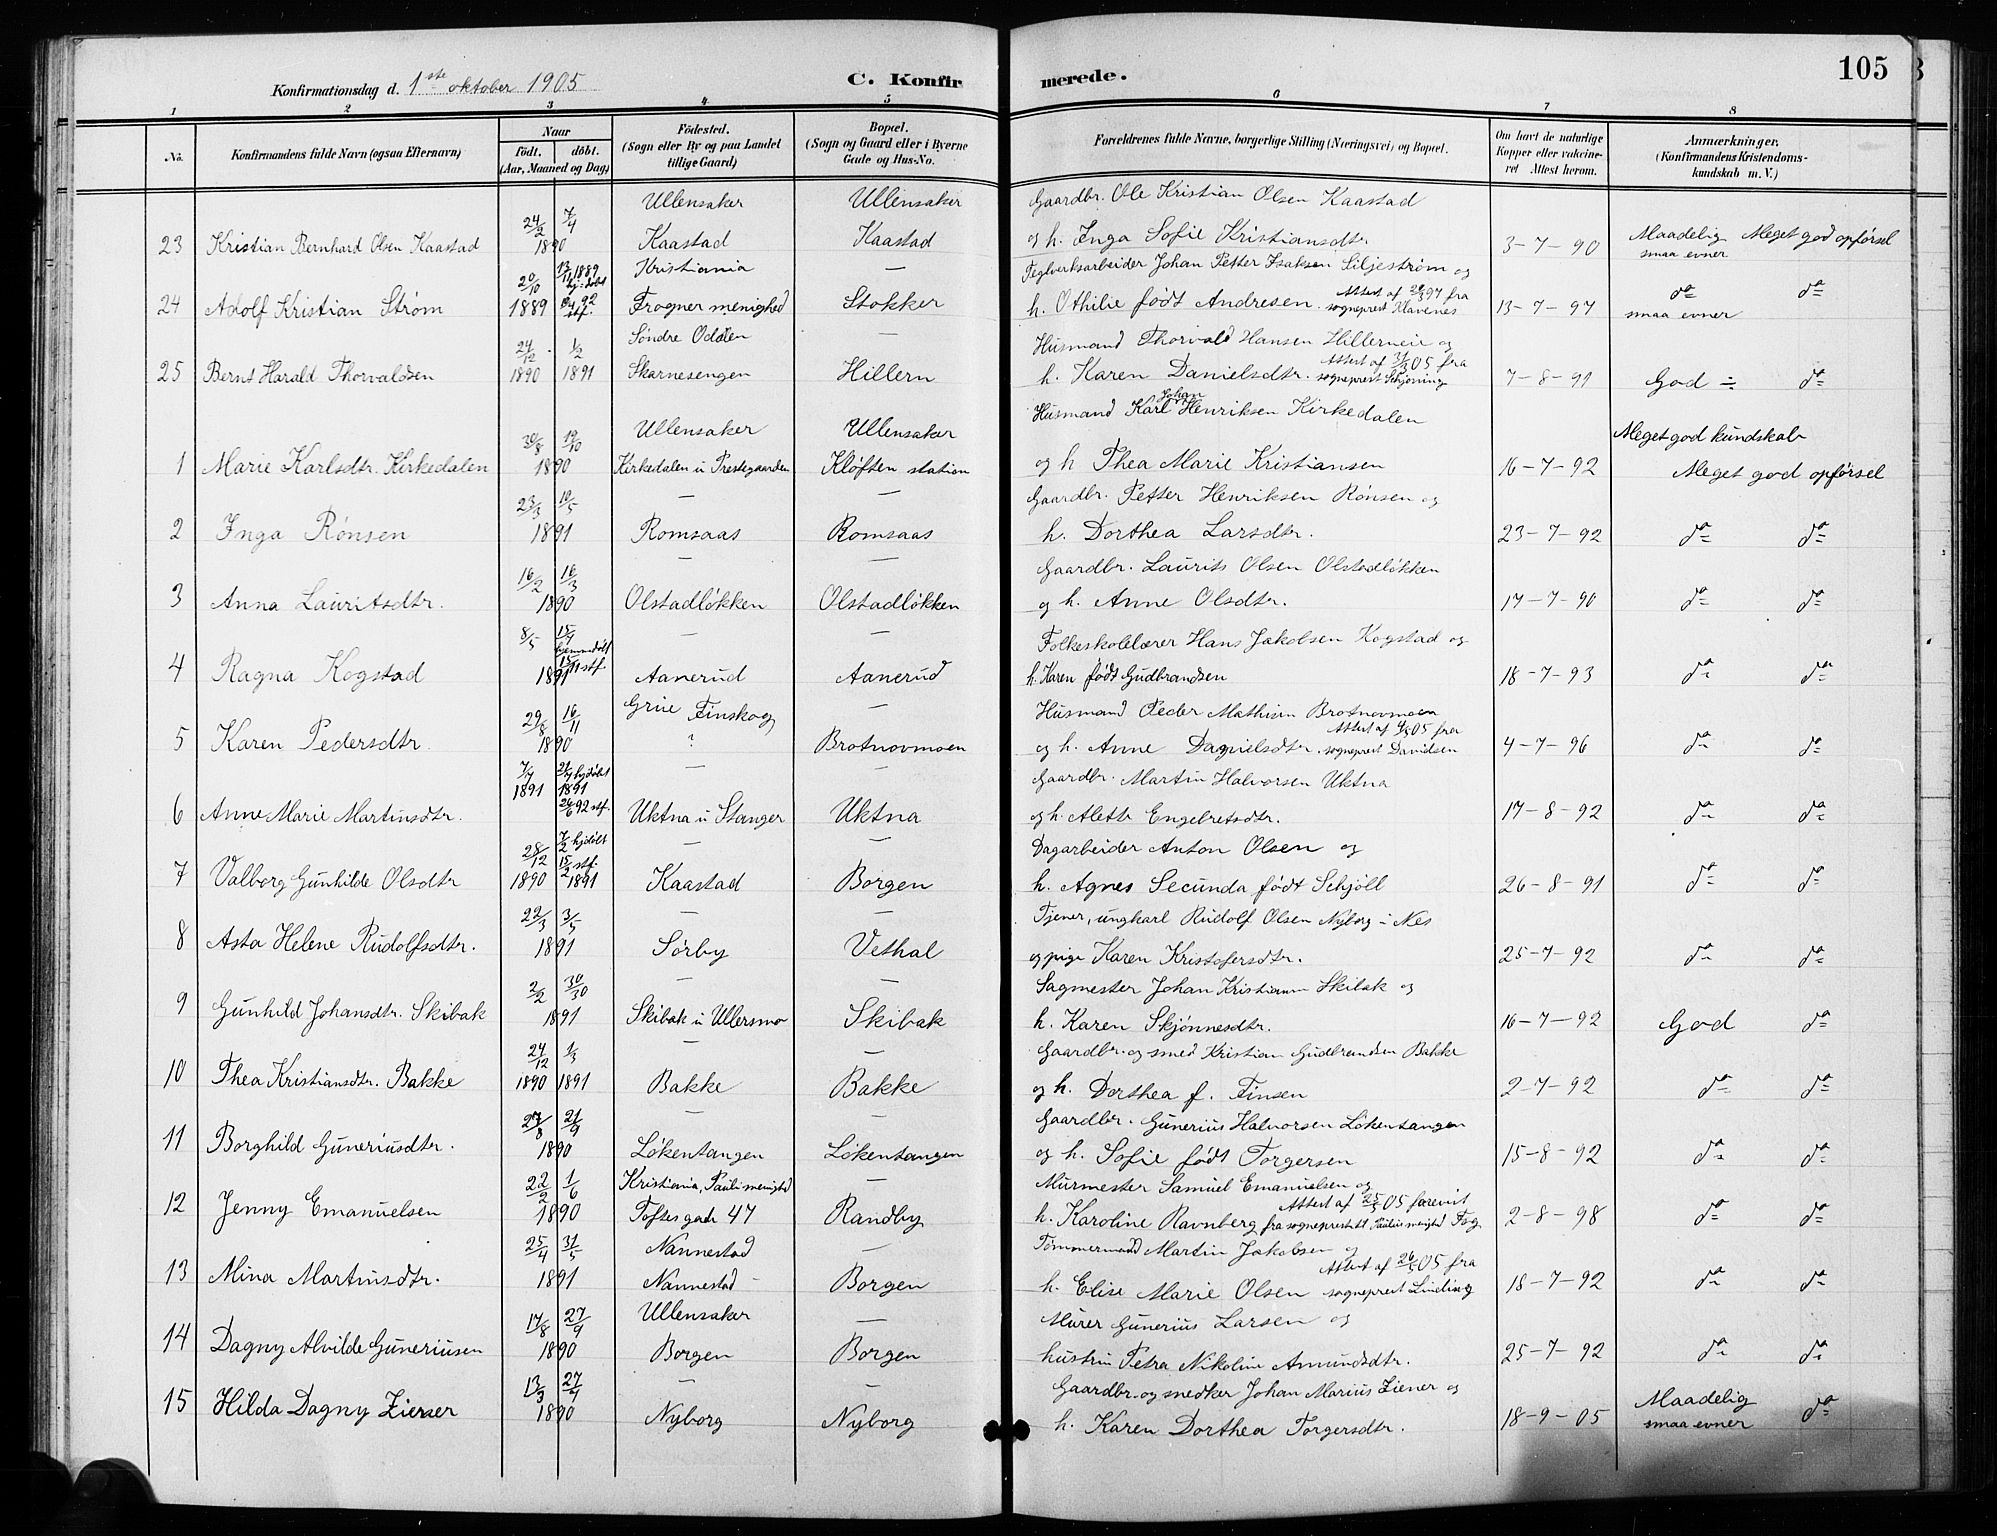 105
Konfirmationsdag d. 1ste oktober 1905 C. Konfirmerede.
1 2 3 4 5 6 7 8
No. Konfirmandens fulde Navn (ogsaa Efternavn) Naar født. døbt. (Aar, Maaned og Dag) Fødested. (Sogn eller By og paa Landet tillige Gaard) Bopæl. (Sogn og Gaard eller i Byerne Gade og Hus-No. Forældrenes fulde Navne, borgerlige Stilling (Næringsvei) og Bopæl. Om havt de naturlige Kopper eller vakcineret Attest herom. Anmærkninger. (Konfirmandens Kristendomskundskab m. V.)
Ullensaker Ullensaker Gaardbr. Ole Kristian Olsen Kaastad
23 Kristian Bernhard Olsen Kaastad 24/2 7/4 1890 Kaastad Kaastad og h. Inga Sofie Kristiansdtr 3-7-90 Maadelig smaa evner Meget god opførsel
Kristiania — Teglverksarbeider Johan Petter Isaksen Siljestrøm og
24 Adolf Kristian Strøm 20/10 1889 Frogner menighed Stokker h. Othilie født Andresen Attest af 97 fra sogneprest Klavenes 13-7-97 do smaa evner do
Søndre Odalen — Husmand Thorvald Hansen Hillerneie og
25 Bernt Harald Thorvaldsen 24/12 1890 1/2 1891 Skarnesengen Hillern h. Karen Danielsdtr. Attest af 31/3 05 fra sogneprest Schjøning 7-8-91 God do
Husmand Karl Johan Henriksen Kirkedalen
Ullensaker Ullensaker Meget god kundskab
1 Marie Karlsdtr. Kirkedalen 30/8 19/10 1890 Kirkedalen u Prestegaarden Kløften station og h Thea Marie Kristiansen 16-7-92 Meget god opførsel
— — Gaardbr. Petter Henriksen Rønsen og
2 Inga Rønsen 23/3 10/5 1891 Romsaas Romsaas h. Dorthea Larsdtr. 23-7-92 do do
— — Gaardbr. Laurits Olsen Olstadløkken
3 Anna Lauritsdtr. 16/2 16/3 1890 Olstadløkken Olstadløkken og h. Anne Olsdtr. 17-7-90 do do
— — Folkeskolelærer Hans Jakobsen Kogstad og
4 Ragna Kogstad 8/5 hjemmedøbt 1891 stf. Aanerud Aanerud h. Karen født Gudbrandsen 18-7-93 do do
Grue Finskog — Husmand Peder Mathisen Brotnovmoen
5 Karen Pedersdtr. 29/8 16/11 1890 ? Brotnovmoen og h. Anne Danielsdtr. Attest af 05 fra sogneprest Davidsen 4-7-96 do do
— — Gaardbr. Martin Halvorsen Uktna
6 Anne Marie Martinsdtr. 7/4 1891 21/4 hjdøbt 1891 26/6 92 stf. Uktna u Stanger Uktna og h. Alette Engebretsdtr. 17-8-92 do do
— — Dagarbeider Anton Olsen og
7 Valborg Gunhilde Olsdtr 28/12 1890 7/2 hjdøbt 15/2 stf. 1891 Kaastad Borgen h. Agnes Secunda født Schjøll 26-8-91 do do
— — Tjener, ungkarl Rudolf Olsen Nyborg i Nes
8 Asta Helene Rudolfsdtr. 22/3 3/5 1891 Sørby Vethal og pige Karen Kristofersdtr. 25-7-92 do do
— — Sagmester Johan Kristiansen Skibak og
9 Gunhild Johansdtr. Skibak 2/2 30/30 1891 Skibak u Ullersmo Skibak h. Karen Skjønnesdtr. 16-7-92 God do
— — Gaardbr. og smed Kristian Gudbrandsen Bakke
10 Thea Kristiansdtr. Bakke 24/12 1890 1/3 1891 Bakke Bakke og h. Dorthea f. Finsen 2-7-92 do do
— — Gaardbr. Gunerius Halvorsen Løkentangen
11 Borghild Guneriusdtr. 27/8 21/9 1890 Løkentangen Løkentangen og h. Sofie født Torgersen 15-8-92 do do
Kristiania, Pauli menighed — Murmester Samuel Emanuelsen og
12 Jenny Emanuelsen 22/2 1/6 1890 Toftes gade 47 Randby h. Karoline Ravnberg Attest af 25/5 05 fra sogneprest til Paulus menighed 2-8-98 do do
Nannestad — Tømmermand Martin Jakobsen og
13 Mina Martinsdtr. 25/4 31/5 1891 Nannestad Borgen h. Elise Marie Olsen Attest af 26/5 05 fra sogneprest 18-7-92 do do
Ullensaker — Murer Gunerius Larsen og
14 Dagny Alvilde Guneriusen 17/8 27/9 1890 Borgen Borgen hustru Petra Nikoline Amundsdtr. 25-7-92 do do
— — Gaardbr. og snedker Johan Marius Ziener og
15 Hilda Dagny Ziener 13/3 27/4 1890 Nyborg Nyborg h. Karen Dorthea Torgersdtr. 18-9-05 Maadelig smaa evner do